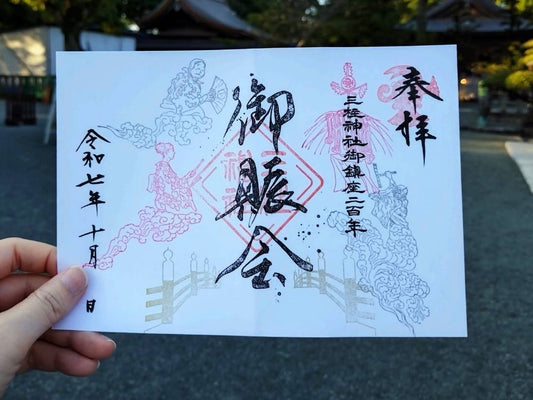 奉拝
三柱神社御鎮座二百年
御賑会
令和七年十月 日